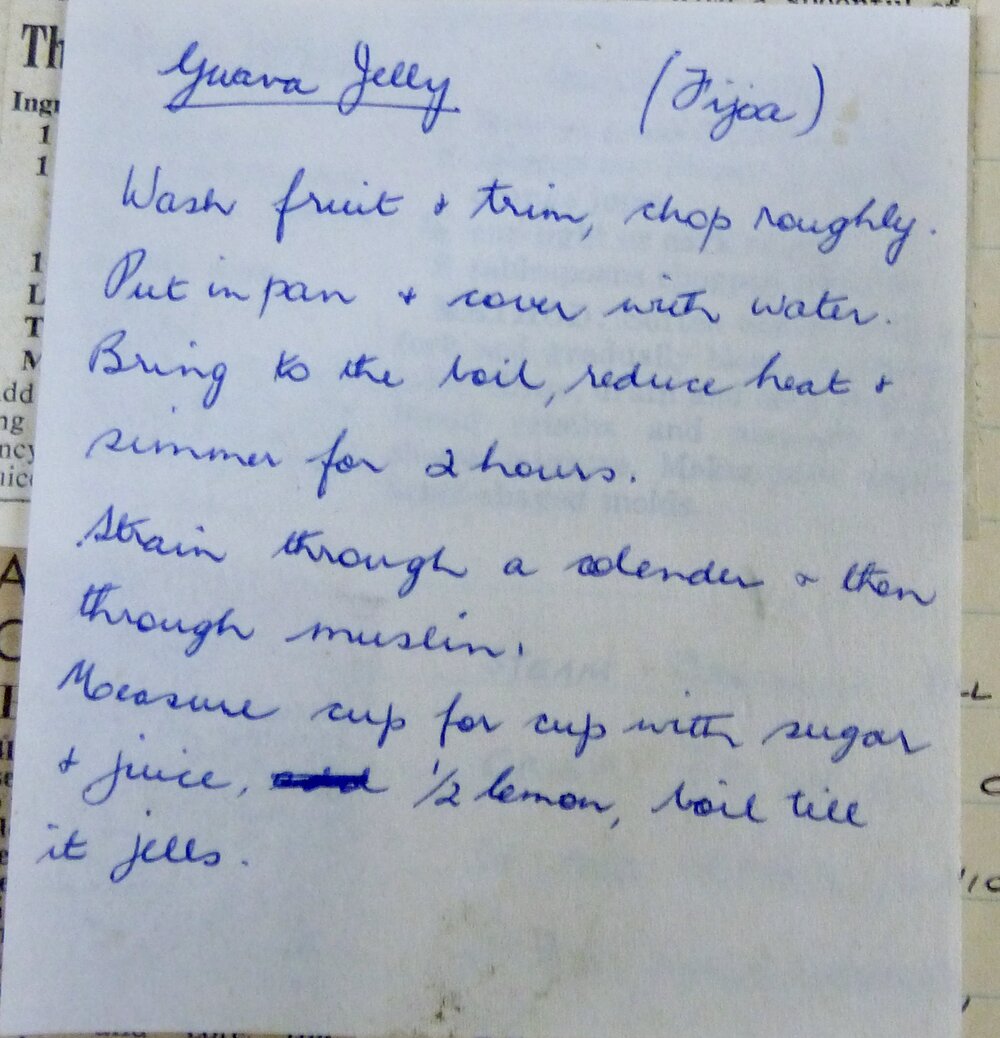 Guava Jelly (Fijoa)
Wash fruit + trim, chop roughly.
Put in pan + cover with water.
Bring to the boil, reduce heat +
simmer for 2 hours.
Strain through a colender + then
through muslin.
Measure cup for cup with sugar
+ juice, 1/2 lemon, boil till
it jells.